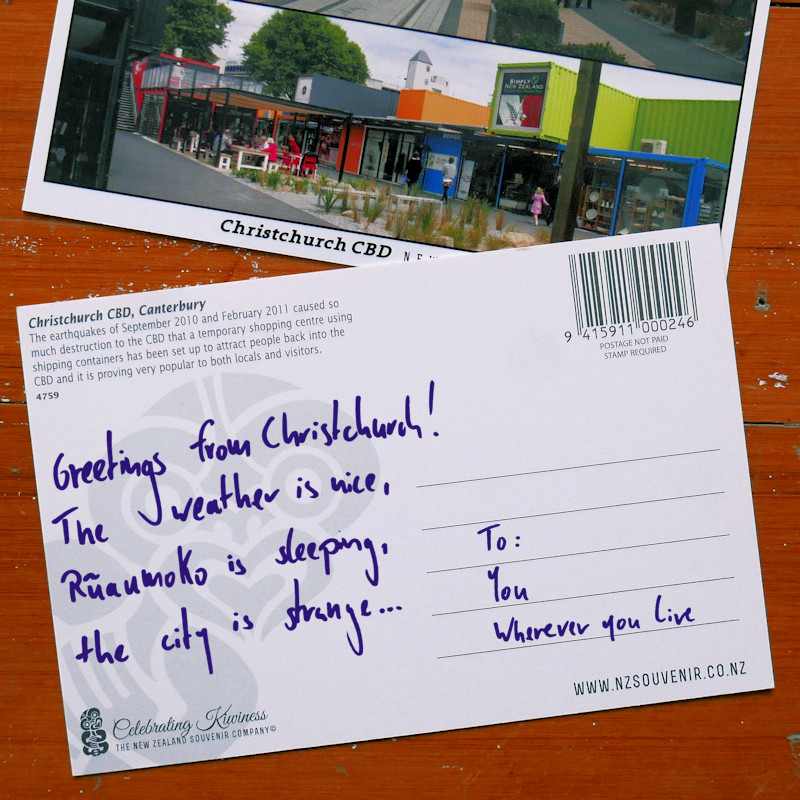 SIMPLY
NEW ZEALAND
Christchurch CBD
Christchurch CBD, Canterbury
The earthquakes of September 2010 and February 2011 caused so
much destruction to the CBD that a temporary shopping centre using
shipping containers has been set up to attract people back into the
CBD and it is proving very popular to both locals and visitors.
4759
9 415911 000246
POSTAGE NOT PAID
STAMP REQUIRED
Greetings from Christchurch!
The weather is nice,
Rũaumoko is sleeping,
the city is strange...
To:
You
Wherever you live
Celebrating Kiwiness
THE NEW ZEALAND SOUVENIR COMPANY©
WWW.NZSOUVENIR.CO.NZ